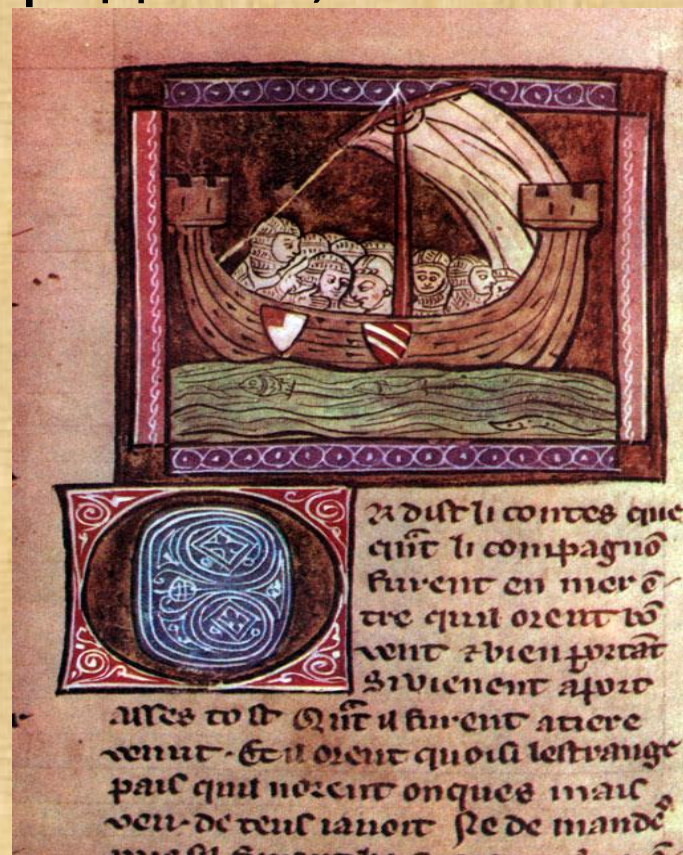 Or dist li contes que
qūt li compagnō
furent en mer ē-
tre quil orent bō
vent ⁊ bien portāt
Si vienent a port
asses tost Qūt il furent a tiere
venut. Et il orent quoisi lestrange
pais quil norent onques mais
veu. de teus i avoit Se de mandē